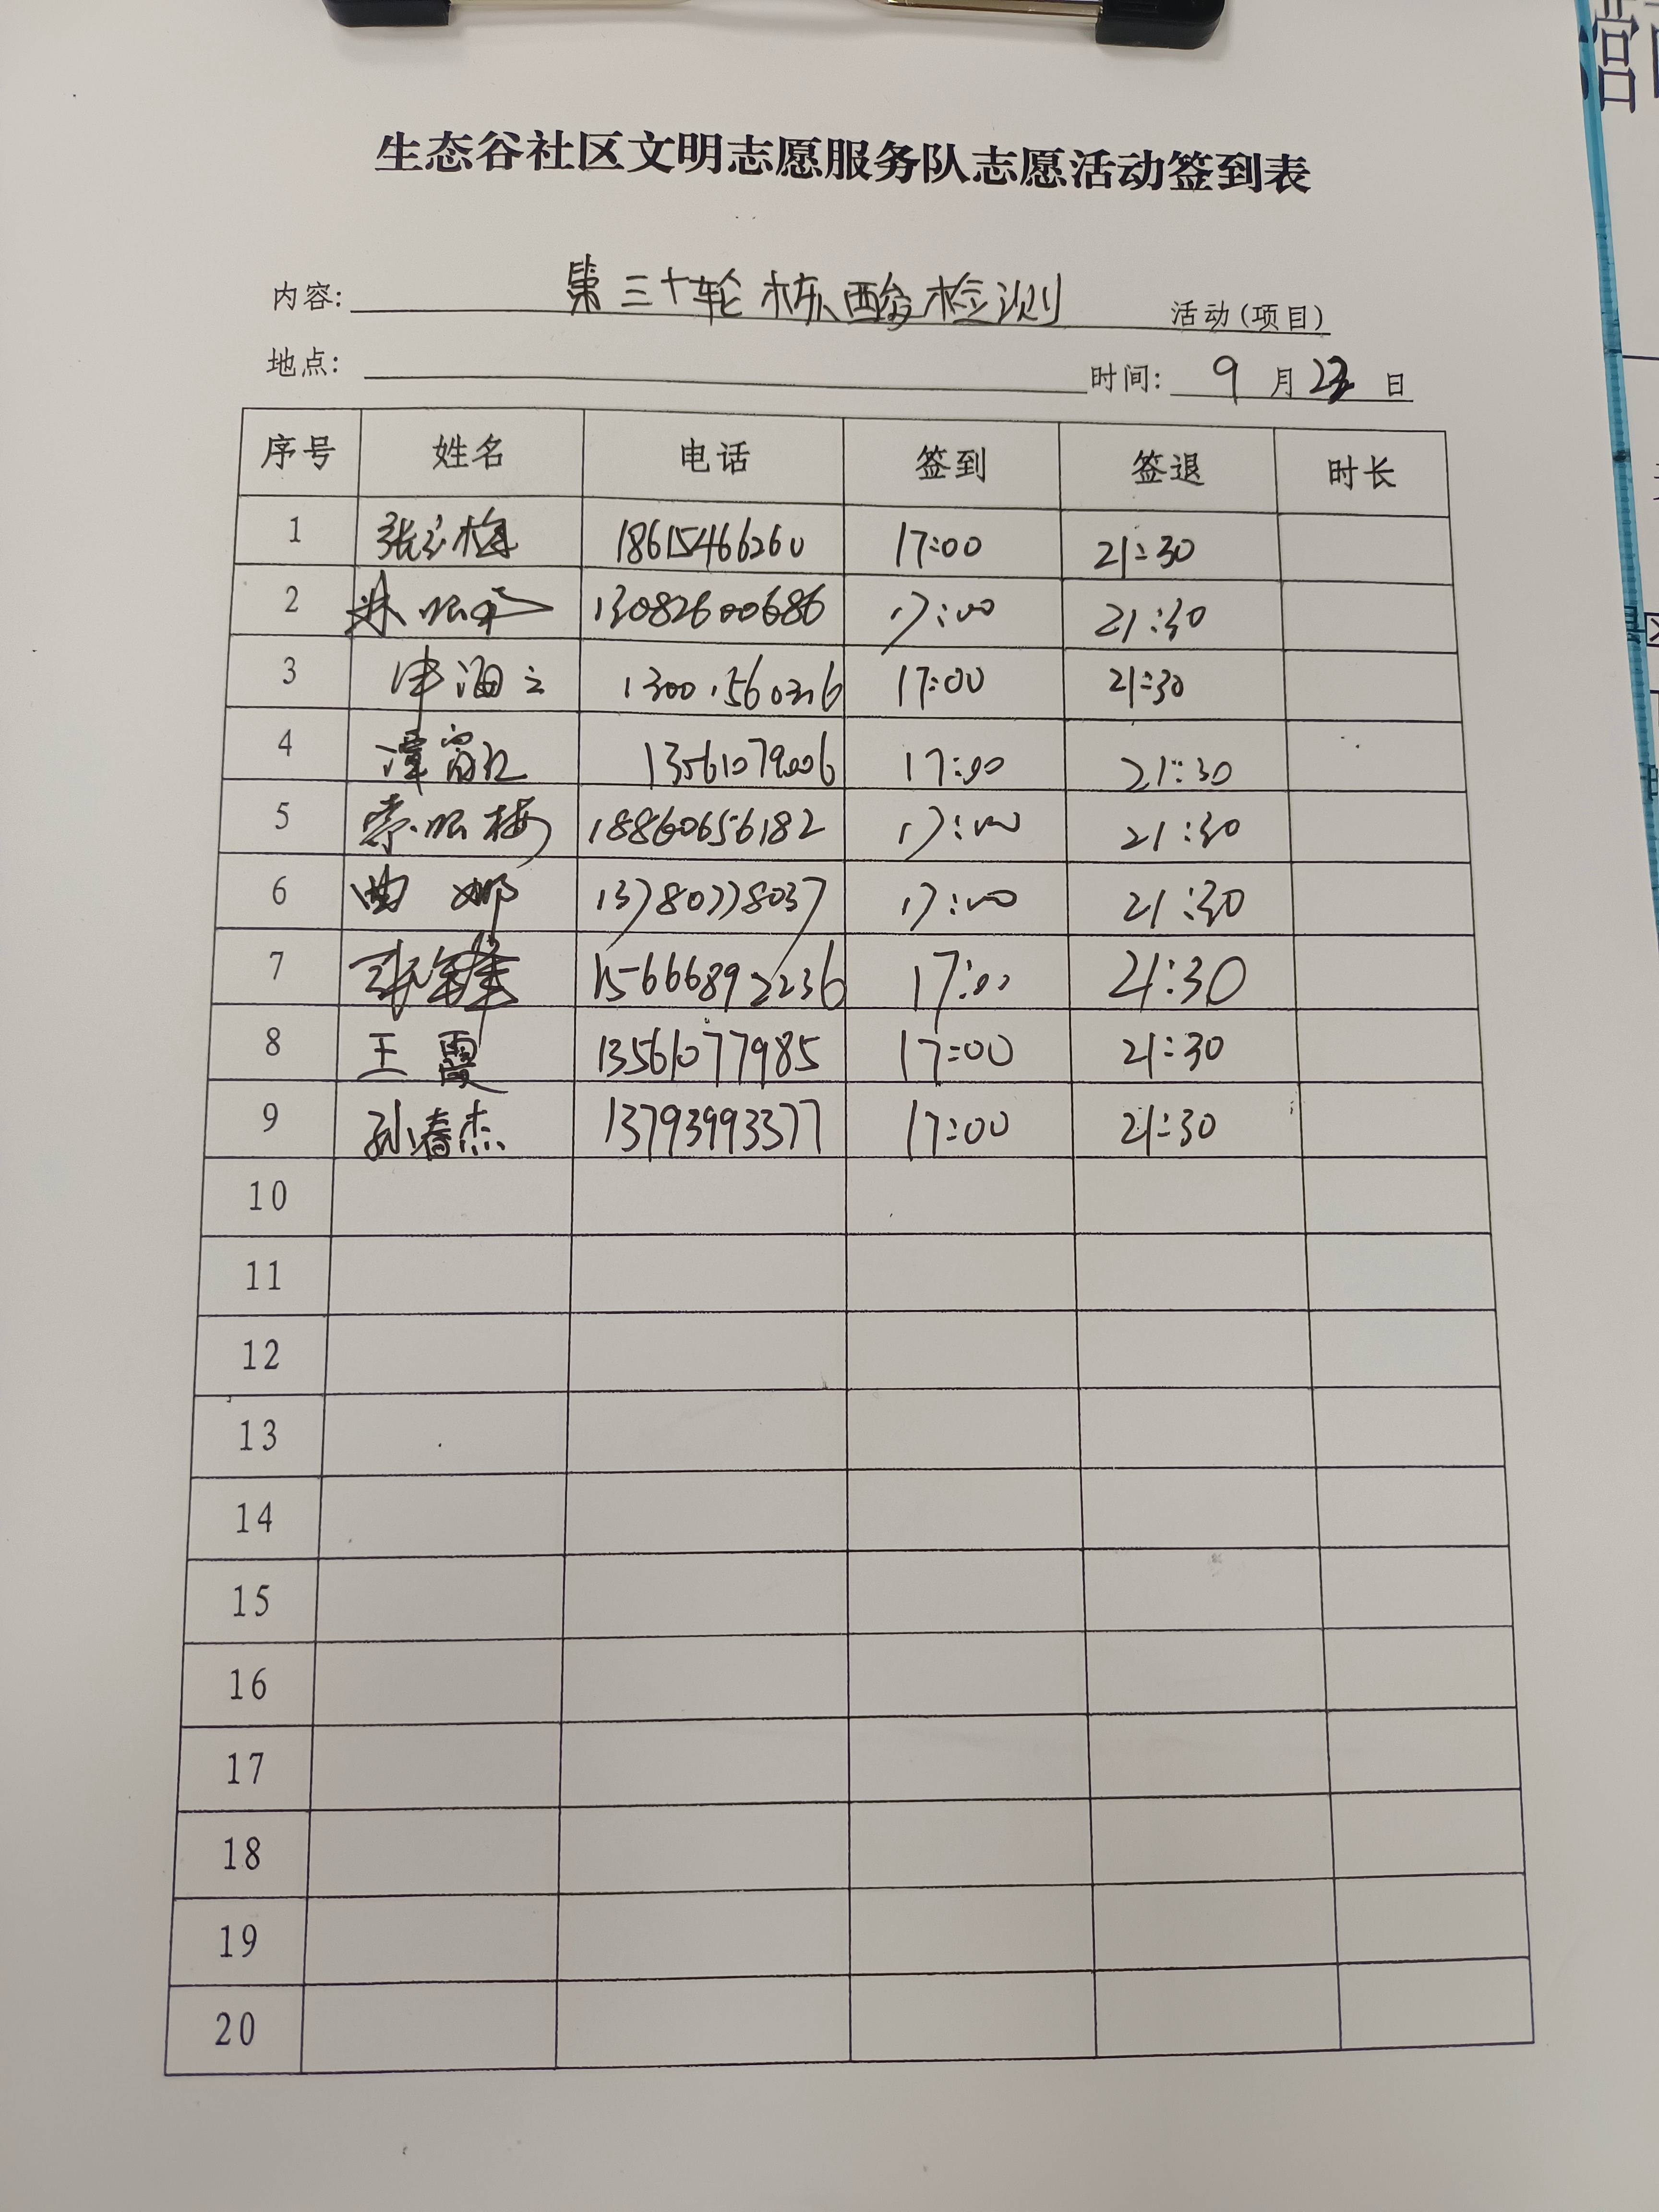 生态谷社区文明志愿服务队志愿活动签到表
内容: 第三十轮核酸检测 活动(项目)
地点: 时间: 9 月 23 日
序号 姓名 电话 签到 签退 时长
1 18615466260 17:00 21:30
2 13082600686 17:00 21:30
3 17:00 21:30
4 17:00 21:30
5 18860656182 17:00 21:30
6 曲娜 13780778037 17:00 21:30
7 15666892236 17:00 21:30
8 王霞 13561077985 17:00 21:30
9 孙春杰 13793993377 17:00 21:30
10
11
12
13
14
15
16
17
18
19
20